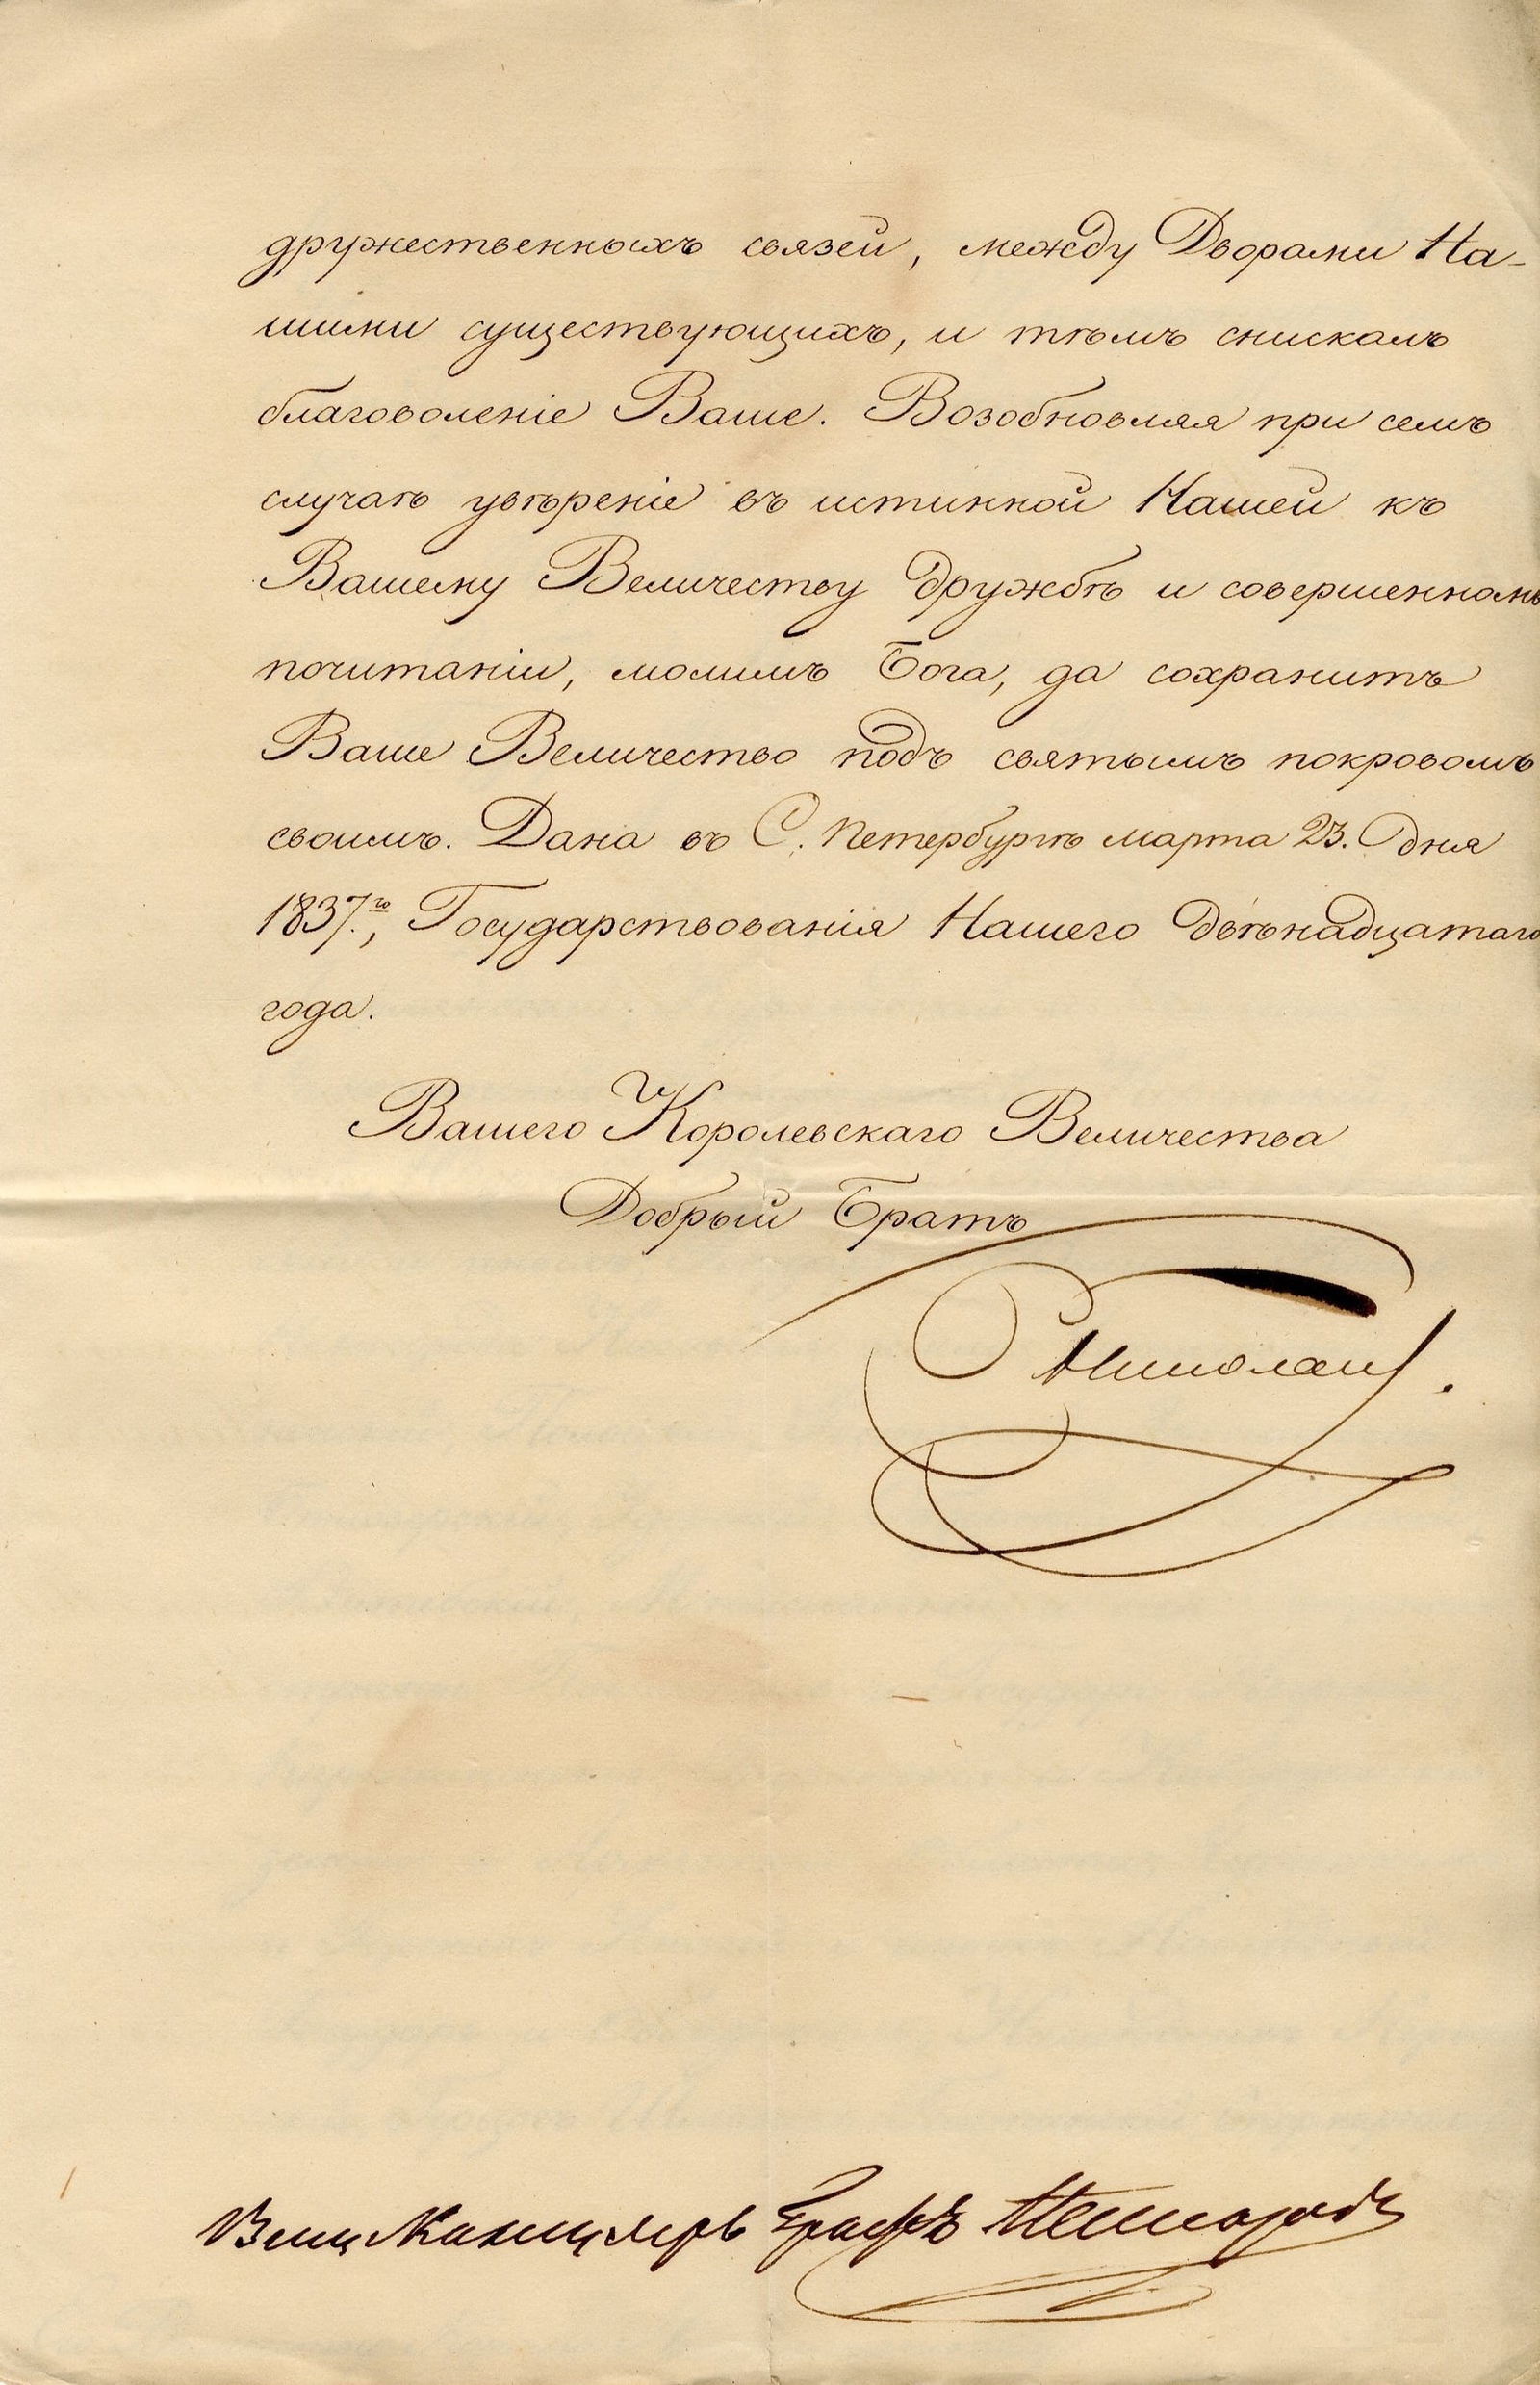 дружественныхъ связей, между Дворами На-
шими существующихъ, и тѣмъ снискалъ
благоволеніе Ваше. Возобновляя при семъ
случаѣ увѣреніе въ истинной Нашей къ
Вашему Величеству дружбѣ и совершенномъ
почитаніи, молимъ Бога, да сохранитъ
Ваше Величество подъ святымъ покровомъ
своимъ. Дана въ С. Петербургѣ марта 23. дня
1837.го, Государствованія Нашего двѣнадцатаго
года.
Вашего Королевскаго Величества
Добрый Братъ
Николай.
Вицъ Канцлеръ Графъ Нессельродъ